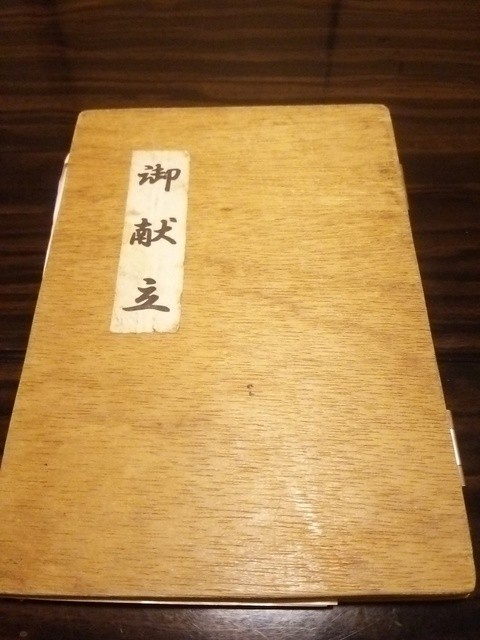 御献立